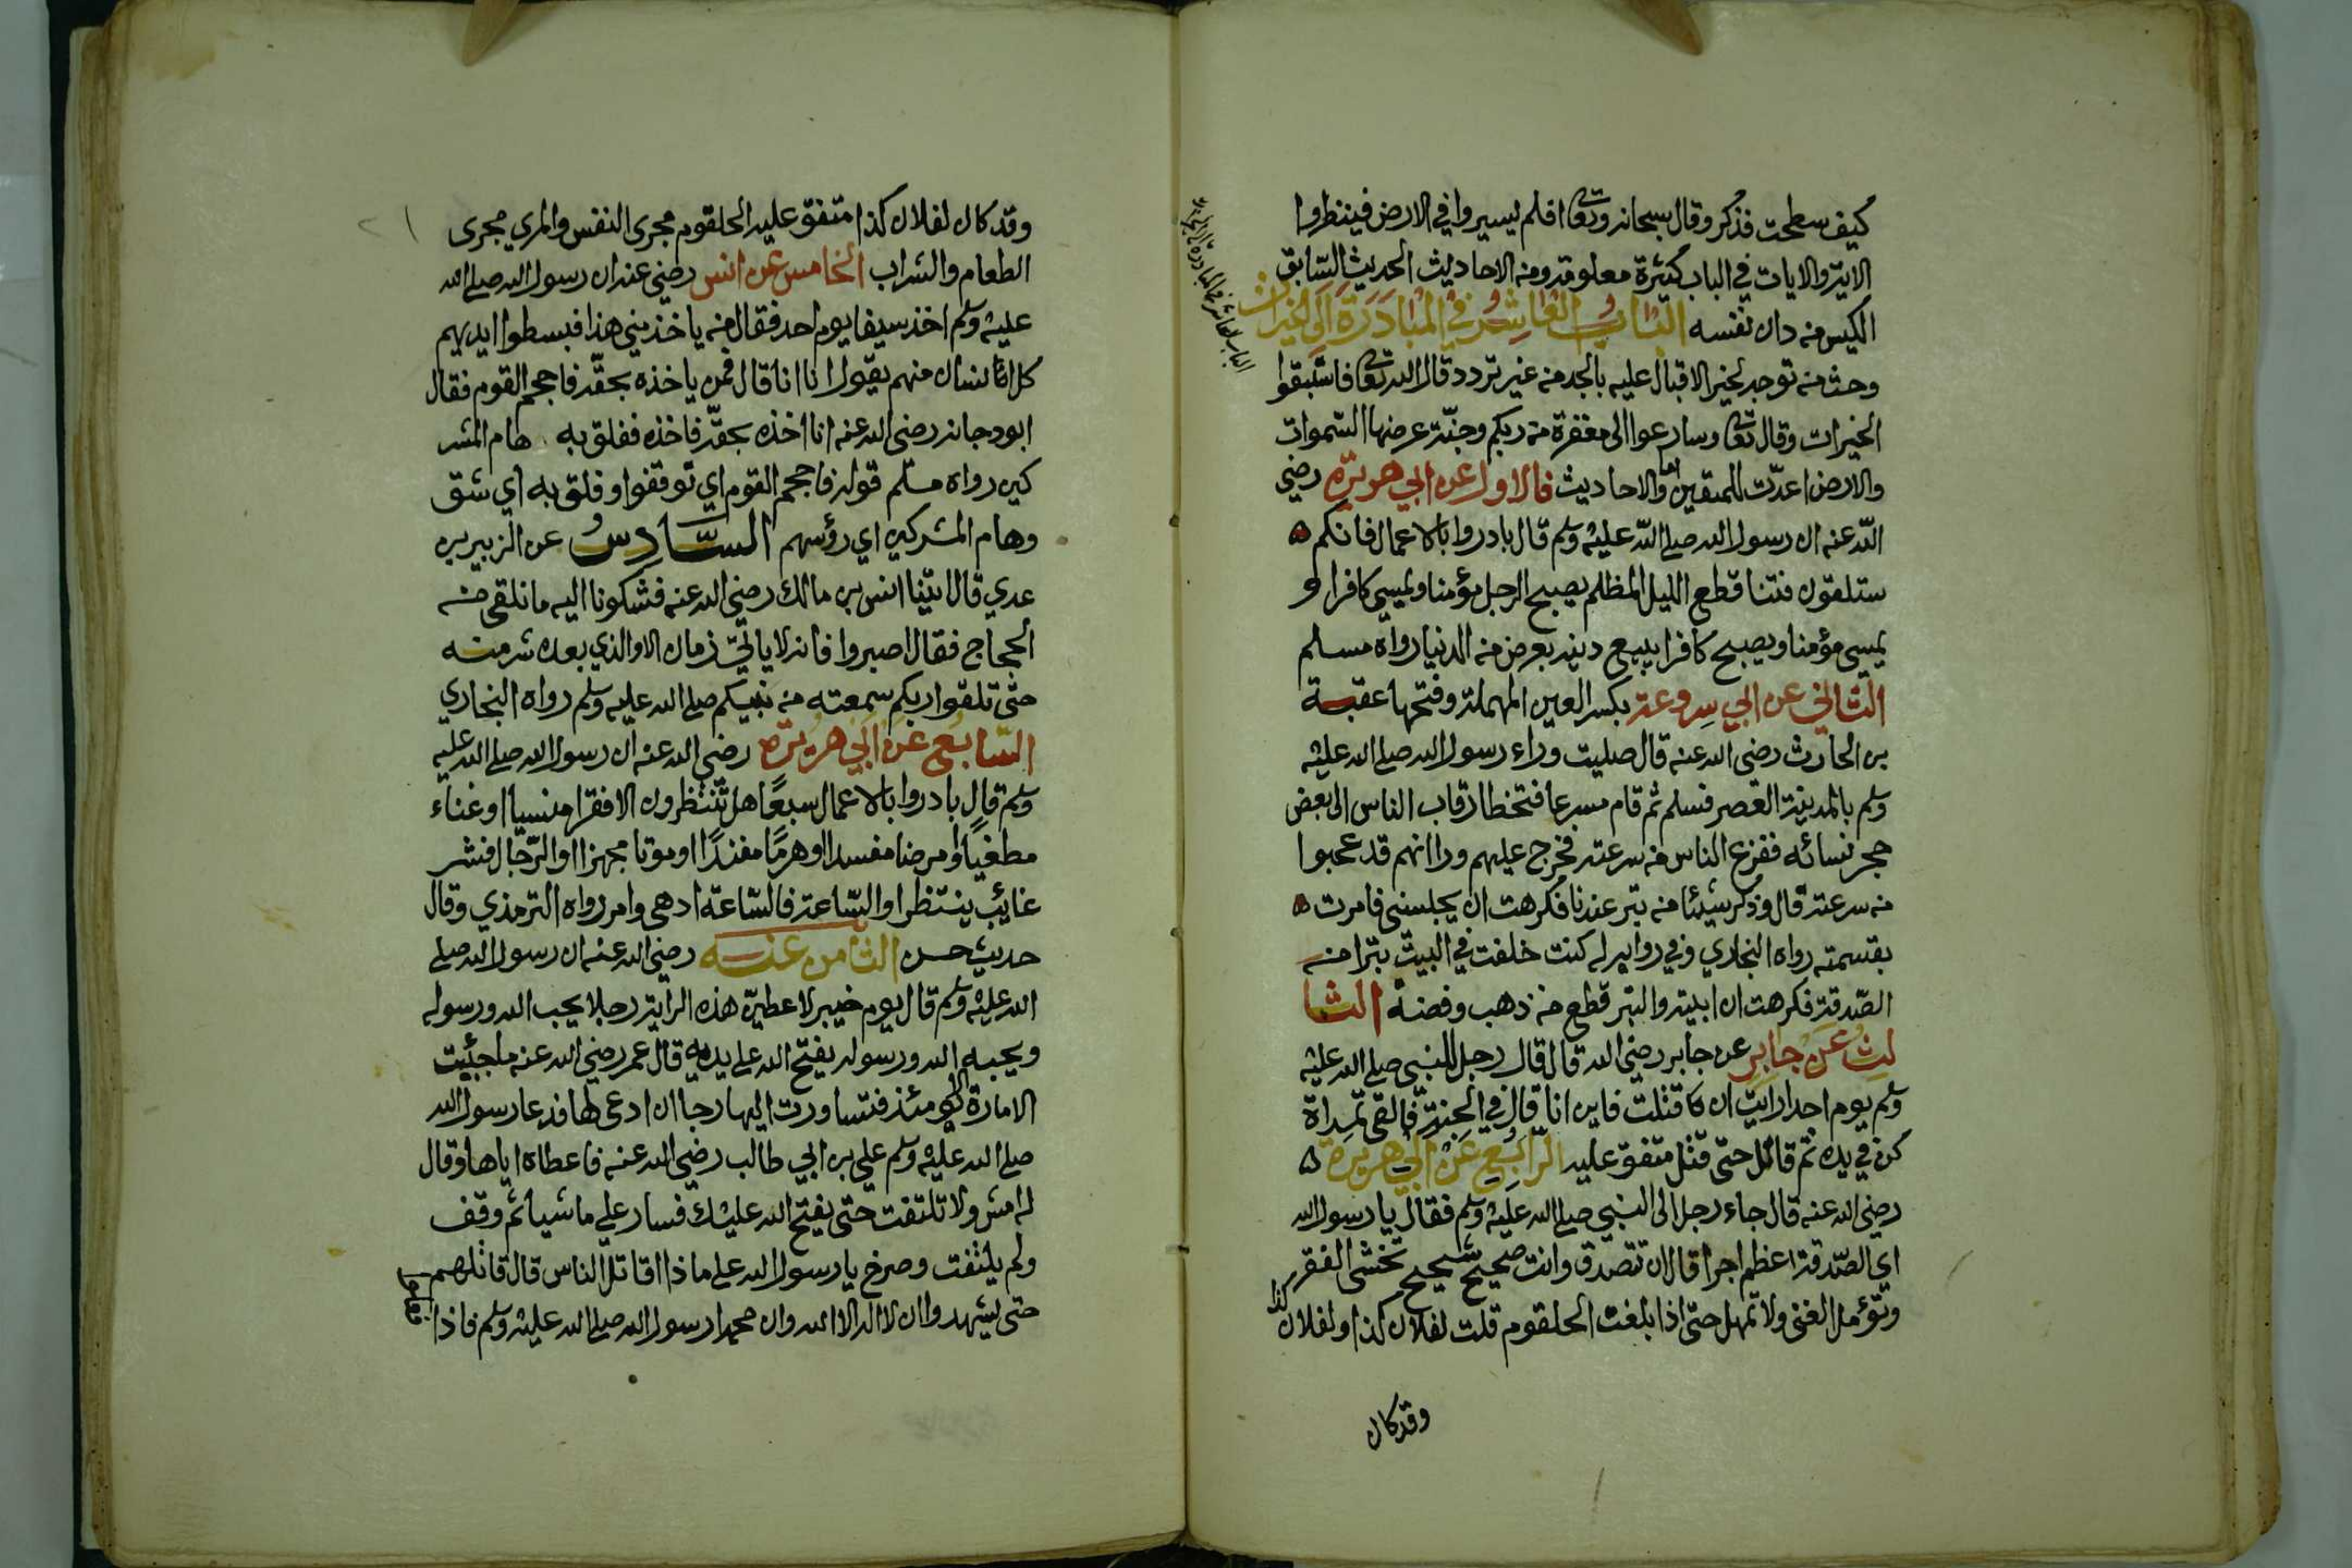 كيف سطحت فذكر وقال سبحانه وتعا افلم يسيروا في الارض فينظروا
الاية والايات في الباب كثيرة معلومة ومنه الاحاديث الحديث السابق
الكيس من دان نفسه الباب العاشر في المبادرة الى الخيرات
وحث من توجه لخير الاقبال عليه بالجد من غير تردد قال الله تعا فاستبقوا
الخيرات وقال تعا وسارعوا الى مغفرة من ربكم وجنة عرضها السموات
والارض اعدت للمتقين واما الاحاديث فالاول عن ابي هريرة رضي
الله عنه ان رسول الله صلى الله عليه وسلم قال بادروا بالاعمال فانكم
ستلقون فتنا قطع الليل المظلم يصبح الرجل مؤمنا ويمسي كافرا و
يمسي مؤمنا ويصبح كافرا يبيع دينه بعرض من الدنيا رواه مسلم
الثاني عن ابي سروعة بكسر العين المهملة وفتحها عقبة
بن الحارث رضي الله عنه قال صليت وراء رسول الله صلى الله عليه
وسلم بالمدينة العصر فسلم ثم قام مسرعا فتخطا رقاب الناس الى بعض
حجر نسائه ففزع الناس من سرعته فخرج عليهم ورا انهم قد عجبوا
من سرعته قال وذكر شيئا من تبر عندنا فكرهت ان يحبسني فامرت
بقسمته رواه البخاري وفي رواية له كنت خلفت في البيت تبرا من
الصدقة فكرهت ان ابيته والتبر قطع من ذهب وفضة الثا
لث عن جابر عن جابر رضي الله قال قال رجل للنبي صلى الله عليه
وسلم يوم احد ارايت ان قتلت فاين انا قال في الجنة فالقى تمراة
كن في يده ثم قاتل حتى قتل متفق عليه الرابع عن ابي هريرة
رضي الله عنه قال جاء رجل الى النبي صلى الله عليه وسلم فقال يا رسول الله
اي الصدقة اعظم اجرا قال ان تصدق وانت صحيح شحيح تخشى الفقر
وتؤمل الغنى ولا تمهل حتى اذا بلغت الحلقوم قلت لفلان كذا ولفلان كذا
وقد كان
الباب العاشر في المبادرة الى الخيرات
وقد كان لفلان كذا متفق عليه الحلقوم مجرى النفس والمري مجرى
الطعام والشراب الخامس عن انس رضي عنه ان رسول الله صلى الله
عليه وسلم اخذ سيفا يوم احد فقال من ياخذ مني هذا فبسطوا ايديهم
كل انسان منهم يقول انا انا قال فمن ياخذه بحقه فاحجم القوم فقال
ابو دجانة رضي الله عنه انا اخذه بحقه فاخذه ففلق به هام المشر
كين رواه مسلم قوله فاحجم القوم اي توقفوا وفلق به اي شق
وهام المشركين اي رؤسهم السادس عن الزبير بن
عدي قال اتينا انس بن مالك رضي الله عنه فشكونا اليه ما نلقى من
الحجاج فقال اصبروا فانه لا ياتي زمان الا والذي بعده شر منه
حتى تلقوا ربكم سمعته من نبيكم صلى الله عليه وسلم رواه البخاري
السابع عن ابي هريرة رضي الله عنه ان رسول الله صلى الله عليه
وسلم قال بادروا بالاعمال سبعا هل تنتظرون الا فقرا منسيا او غناء
مطغيا او مرضا مفسدا او هرما مفندا او موتا مجهزا او الدجال فشر
غائب ينتظر او الساعة فالساعة ادهى وامر رواه الترمذي وقال
حديث حسن الثامن عنه رضي الله عنه ان رسول الله صلى
الله عليه وسلم قال يوم خيبر لاعطين هذه الراية رجلا يحب الله ورسوله
ويحبه الله ورسوله يفتح الله على يديه قال عمر رضي الله عنه ما احببت
الامارة الا يومئذ فتساورت اليها رجا ان ادعى لها فدعا رسول الله
صلى الله عليه وسلم علي بن ابي طالب رضي الله عنه فاعطاه اياها وقال
له امش ولا تلتفت حتى يفتح الله عليك فسار علي ما شيا ثم وقف
ولم يلتفت وصرخ يا رسول الله على ماذا اقاتل الناس قال قاتلهم
حتى يشهدوا ان لا اله الا الله وان محمدا رسول الله صلى الله عليه وسلم فاذا